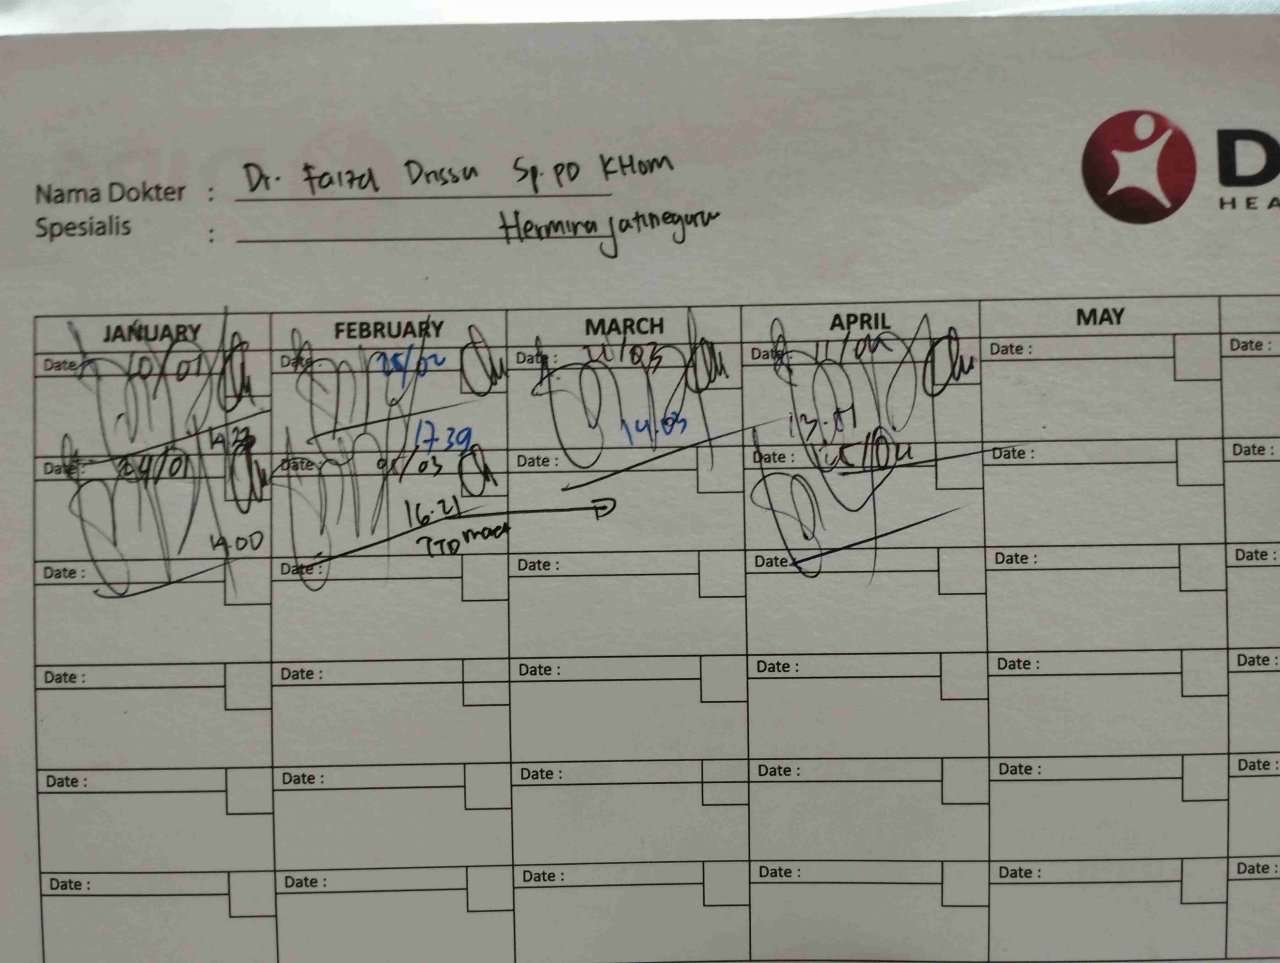 Nama Dokter : Dr. Faiza Drissa Sp.PD KHOM
Spesialis : Hermina Jatinegara
D
HEA
JANUARY FEBRUARY MARCH APRIL MAY
Date : 10/01 Date : 25/02 Date : /03 Date : 11/04 Date : Date :
14.22 17.39 14.03 13.01
Date : 24/01 Date : /03 Date : Date : /04 Date : Date :
14.00 16.21
TTD maret
Date : Date : Date : Date : Date : Date :
Date : Date : Date : Date : Date : Date :
Date : Date : Date : Date : Date : Date :
Date : Date : Date : Date : Date : Date :